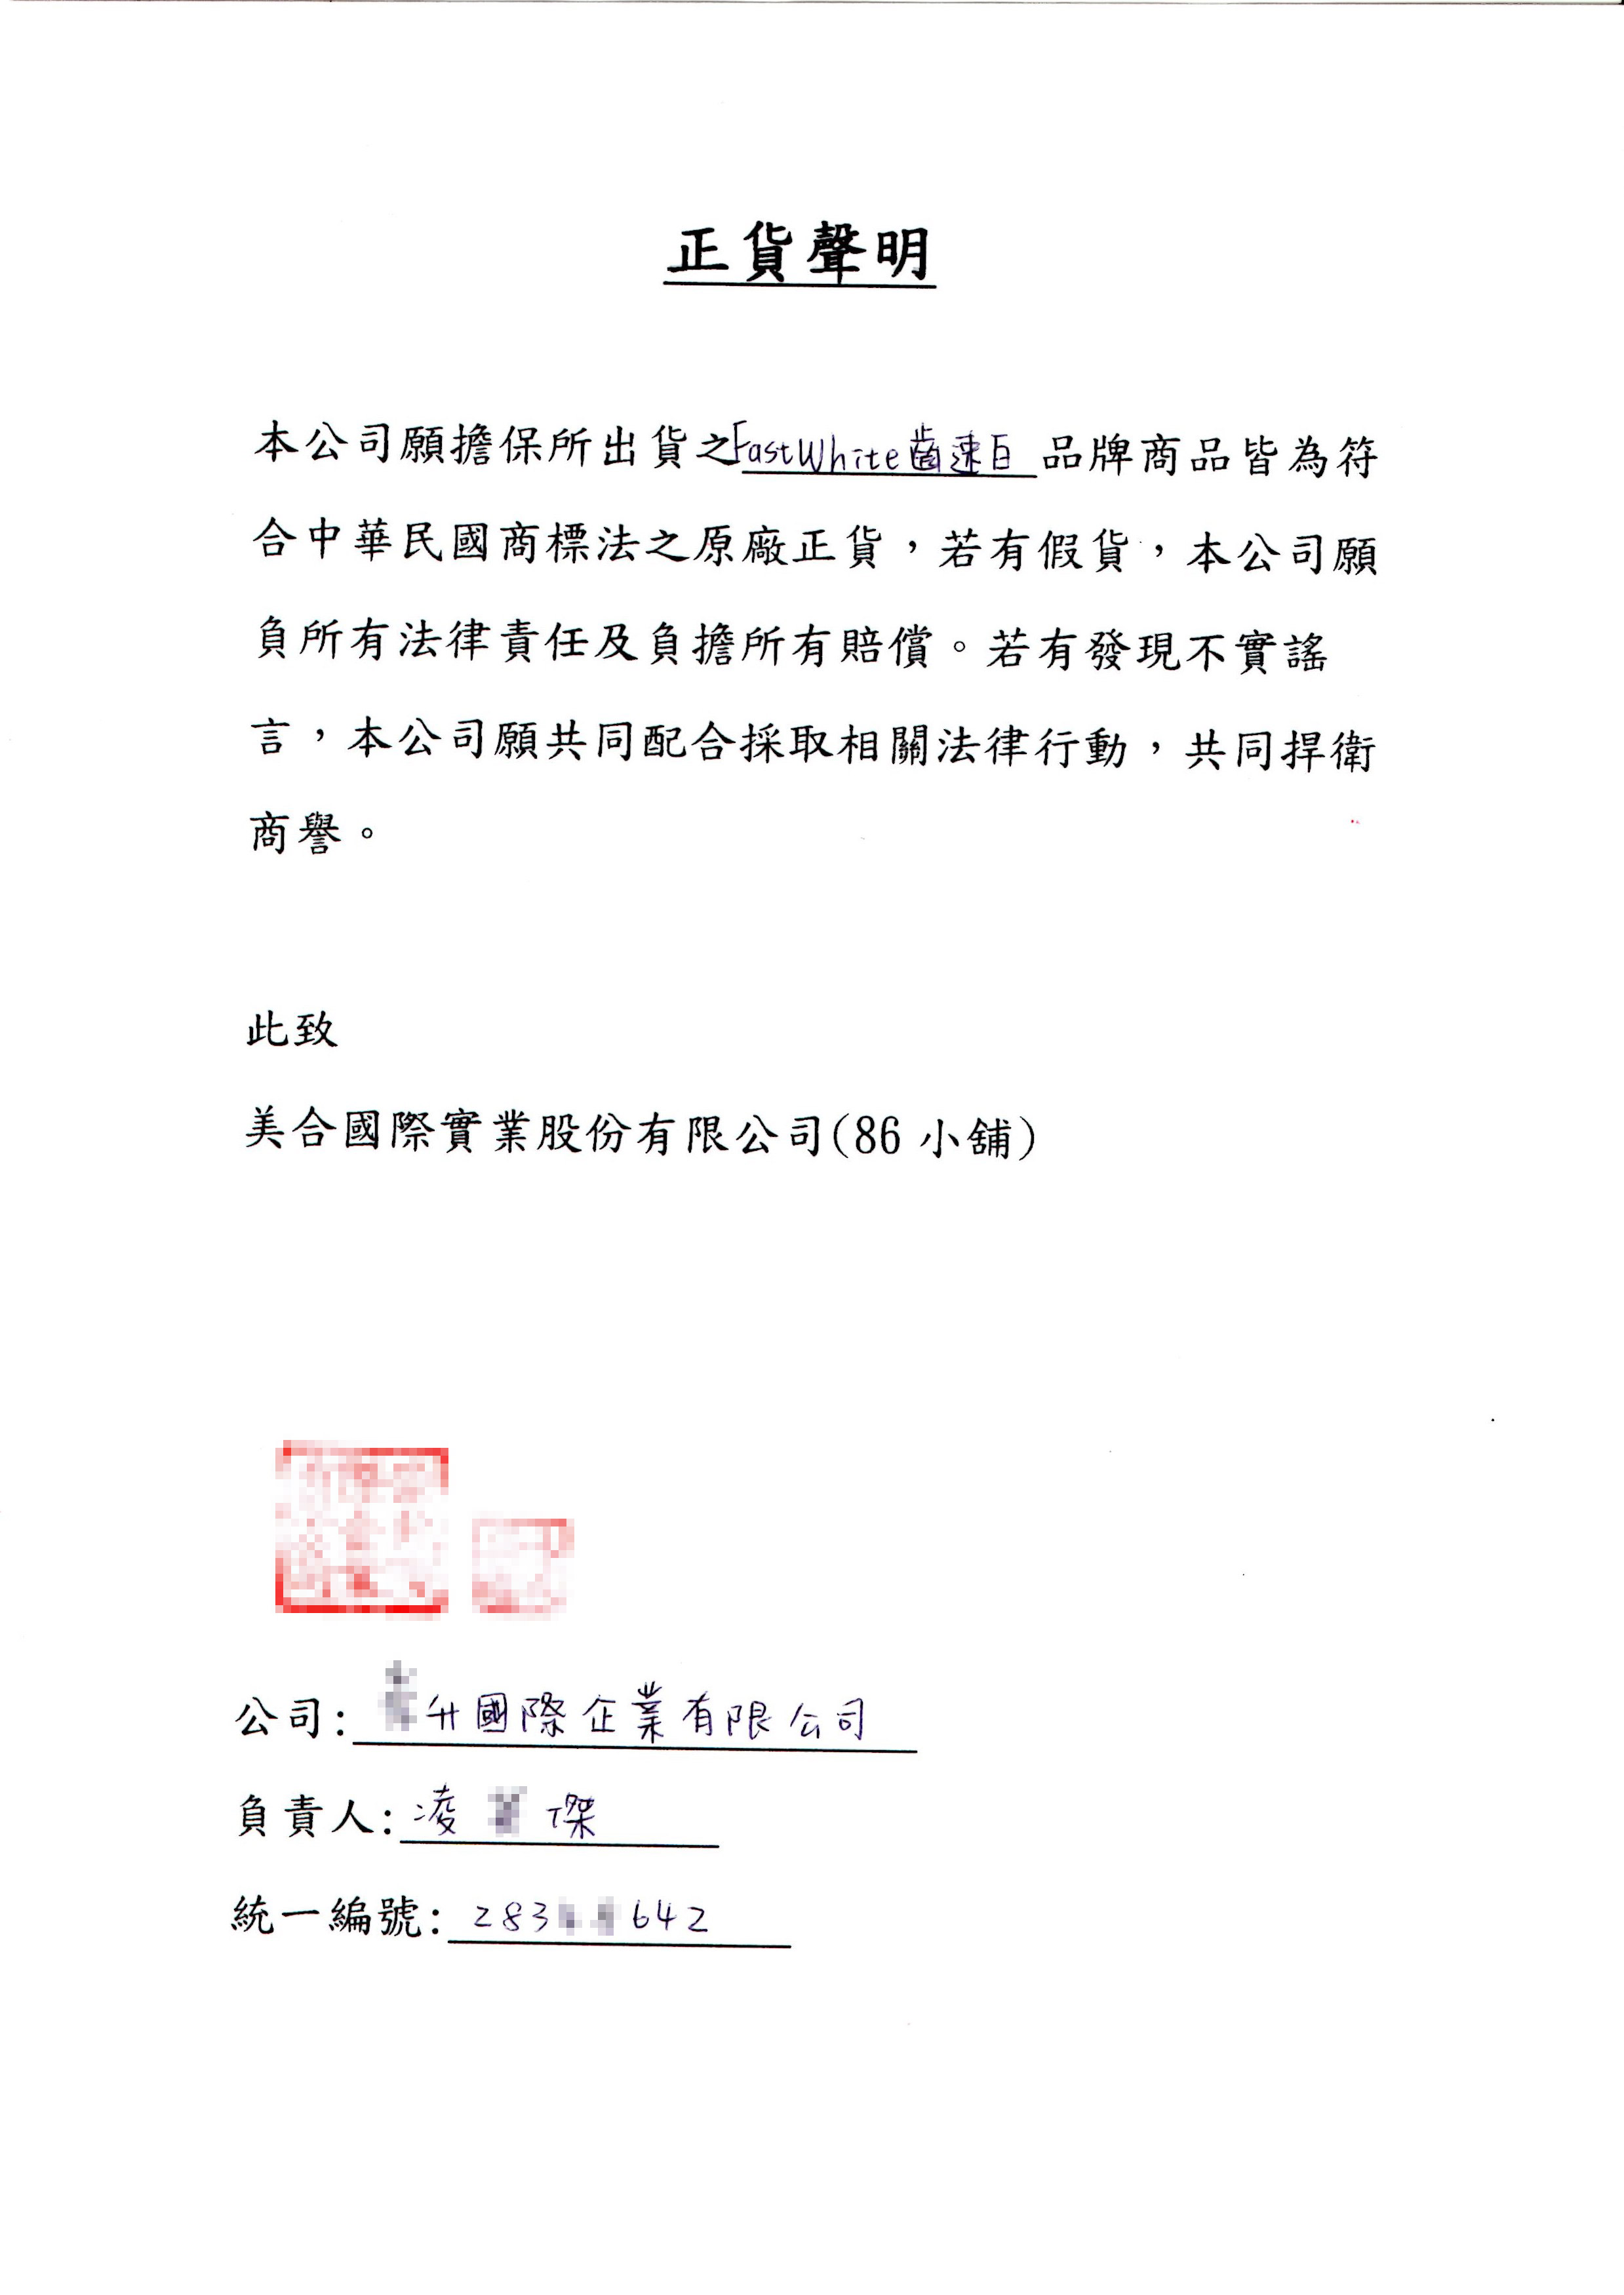 正貨聲明
本公司願擔保所出貨之FastWhite齒速白品牌商品皆為符
合中華民國商標法之原廠正貨，若有假貨，本公司願
負所有法律責任及負擔所有賠償。若有發現不實謠
言，本公司願共同配合採取相關法律行動，共同捍衛
商譽。
此致
美合國際實業股份有限公司(86小舖)
公司:升國際企業有限公司
負責人:凌 傑
統一編號:283 642